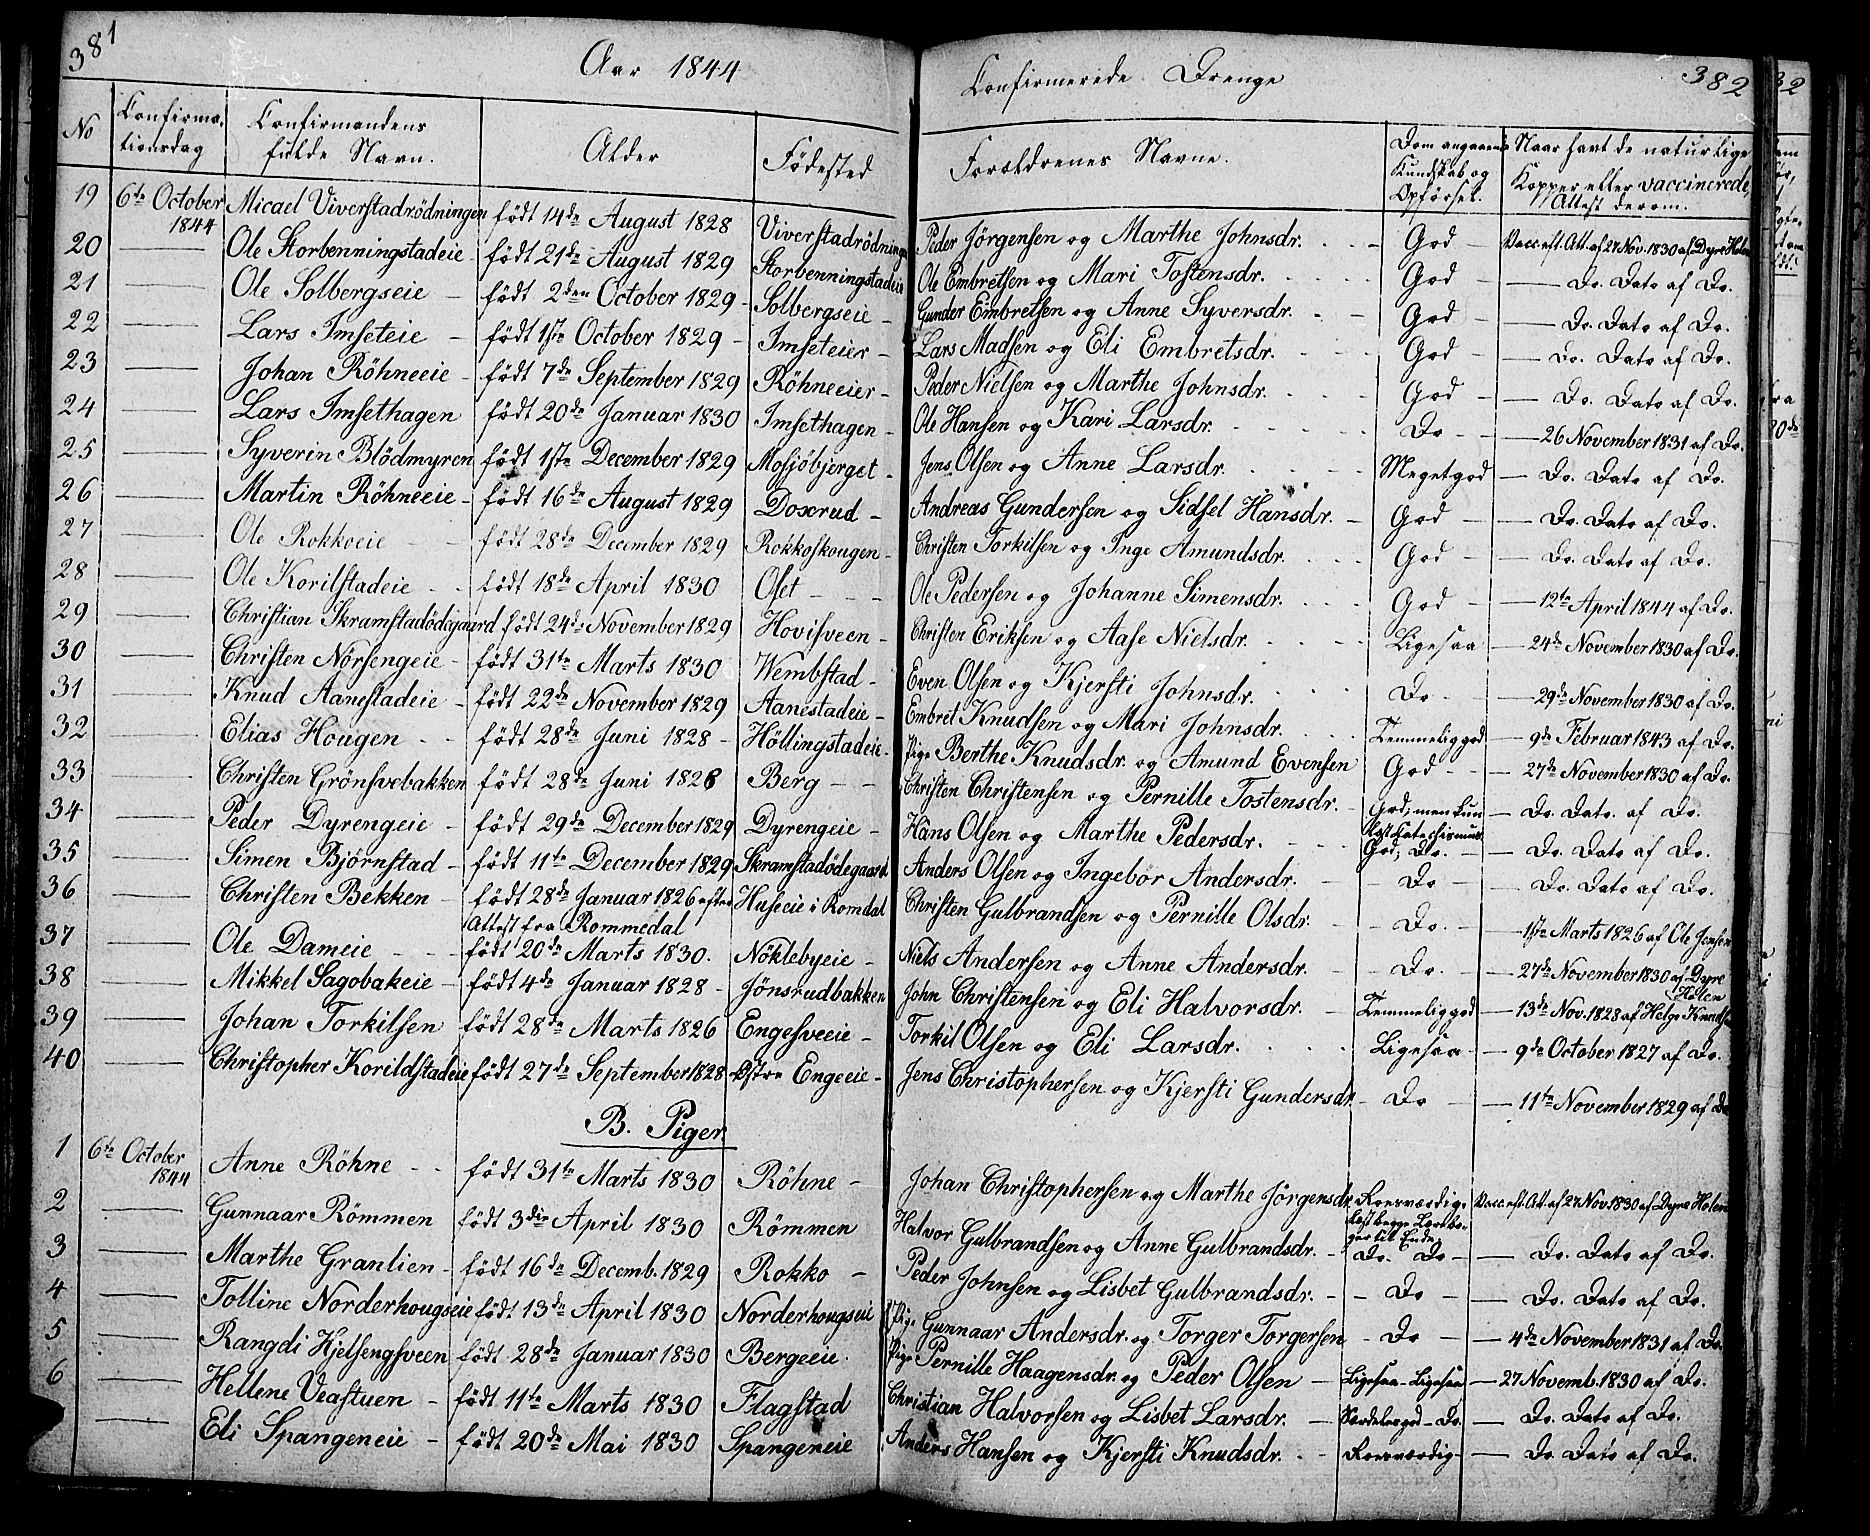 381
Aar 1844
Confirmerede Drenge
382
No | Confirma-tionsdag | Confirmandens fulde Navn. | Alder | Fødested | Forældrenes Navne. | Dom angaaende Kundskab og Opførsel. | Naar havt de naturlige Kopper eller vaccinerede, Attest derom.
19 | 6te October 1844 | Micael Viverstadrödningen | födt 14de August 1828 | Viverstadrödningen | Peder Jörgensen og Marthe Johnsdr. | God | Vacc. eft. Att. af 27 Nov. 1830 af Dyre Holen
20 | Ole Storbenningstadeie | födt 21de August 1829 | Storbenningstadeie | Ole Embretsen og Mari Tostensdr. | God | Do. Dato af Do.
21 | Ole Solbergseie | födt 2den October 1829 | Solbergseie | Gunder Embretsen og Anne Syversdr. | God | Do. Dato af Do.
22 | Lars Imseteie | födt 1ste October 1829 | Imseteier | Lars Madsen og Eli Embretsdr. | God | Do. Dato af Do.
23 | Johan Röhneeie | födt 7de September 1829 | Röhneeier | Peder Nielsen og Marthe Johnsdr. | God | Do. Dato af Do.
24 | Lars Imsethagen | födt 20de Januar 1830 | Imsethagen | Ole Hansen og Kari Larsdr. | Do | 26 November 1831 af Do.
25 | Syverin Blödmyren | födt 1ste December 1829 | Mosjöbjerget | Jens Olsen og Anne Larsdr. | Megetgod | Do. Dato af Do.
26 | Martin Röhneeie | födt 16de August 1829 | Doxrud | Andreas Gundersen og Sidsel Hansdr. | God | Do. Dato af Do.
27 | Ole Rokkoeie | födt 28de December 1829 | Rokkoskougen | Christen Torkilsen og Inge Amundsdr. | God | Do. Dato af Do.
28 | Ole Korilstadeie | födt 18de April 1830 | Olset | Ole Pedersen og Johanne Simensdr. | God | 12te April 1844 af Do.
29 | Christian Skramstadödegaard | födt 24de November 1829 | Hovisveen | Christen Eriksen og Aase Nielsdr. | Ligesaa | 24de November 1830 af Do.
30 | Christen Nörsengeie | födt 31te Marts 1830 | Wembstad | Even Olsen og Kjersti Johnsdr. | Do | 29de November 1830 af Do.
31 | Knud Aanestadeie | födt 22de November 1829 | Aanestadeie | Embret Knudsen og Mari Johnsdr. | Temmeliggod | 9de Februar 1843 af Do.
32 | Elias Hougen | födt 28de Juni 1828 | Höllingstadeie | Pige Berthe Knudsdr. og Amund Evensen | God | 27de November 1830 af Do.
33 | Christen Grönsvebakken | födt 28de Juni 1828 | Berg | Christen Christensen og Pernille Tostensdr. | God; men kun læst Catechismus | Do. Dato. af Do.
34 | Peder Dyrengeie | födt 29de December 1829 | Dyrengeie | Hans Olsen og Marthe Pedersdr. | God; Do. | Do. Dato af Do.
35 | Simen Björnstad | födt 11te December 1829 | Skramstadödegaard | Anders Olsen og Ingebör Andersdr. | Do | Do. Dato af Do.
36 | Christen Bekken | födt 28de Januar 1826 efter Attest fra Rommedal | Huseeie i Romdal | Christen Gulbrandsen og Pernille Olsdr. | Do. | 1ste Marts 1826 af Ole Jensen
37 | Ole Dameie | födt 20de Marts 1830. | Nöklebyeie | Niels Andersen og Anne Andersdr. | Do. | 27de November 1830 af Dyre Holen
38 | Mikkel Sagobakeie | födt 4de Januar 1828 | Jönsrudbakken | John Christensen og Eli Halvorsdr. | Temmeliggod | 13de Nov. 1828 af Helge Knudsen
39 | Johan Torkilsen | födt 28de Marts 1826 | Engesveeie | Torkil Olsen og Eli Larsdr. | Ligesaa | 9de October 1827 af Do.
40 | Christopher Korildstadeie | födt 27de September 1828 | Östre Engeeie | Jens Christophersen og Kjersti Gundersdr. | Do | 11te November 1829 af Do
B. Piger
1 | 6te October 1844 | Anne Röhne | födt 31te Marts 1830 | Röhne | Johan Christophersen og Marthe Jörgensdr. | Roesværdig. læst begge Lærebøger til Ende. | Vacc. eft. Att. af 27 Nov. 1830 af Dyre Holen
2 | Gunnaar Römmen | födt 3die April 1830 | Römmen | Halvor Gulbrandsen og Anne Gulbrandsdr. | Do. Do | Do. Dato af Do.
3 | Marthe Granlien | födt 16de Decemb. 1829 | Rokko | Peder Johnsen og Lisbet Gulbrandsdr. | Do | Do. Dato af Do.
4 | Tolline Norderhougseie | födt 13de April 1830 | Norderhougseie | Pige Gunnaar Andersdr. og Torger Torgersen | Do | 4de November 1831 af Do.
5 | Rangdi Hjelsengsveen | födt 28de Januar 1830 | Bergeeie. | Pige Pernille Haagensdr. og Peder Olsen | Ligesaa - Ligesaa | 27 Novemb. 1830 af Do.
6 | Hellene Veastuen | födt 11te Marts 1830 | Flagstad | Christian Halvorsen og Lisbet Larsdr. | Særdelesgod - Do. | Do. Dato af Do.
Eli Spangeneie | födt 20de Mai 1830 | Spangeneie | Anders Hansen og Kjersti Knudsdr. | Roesværdig | Do. Dato af Do.